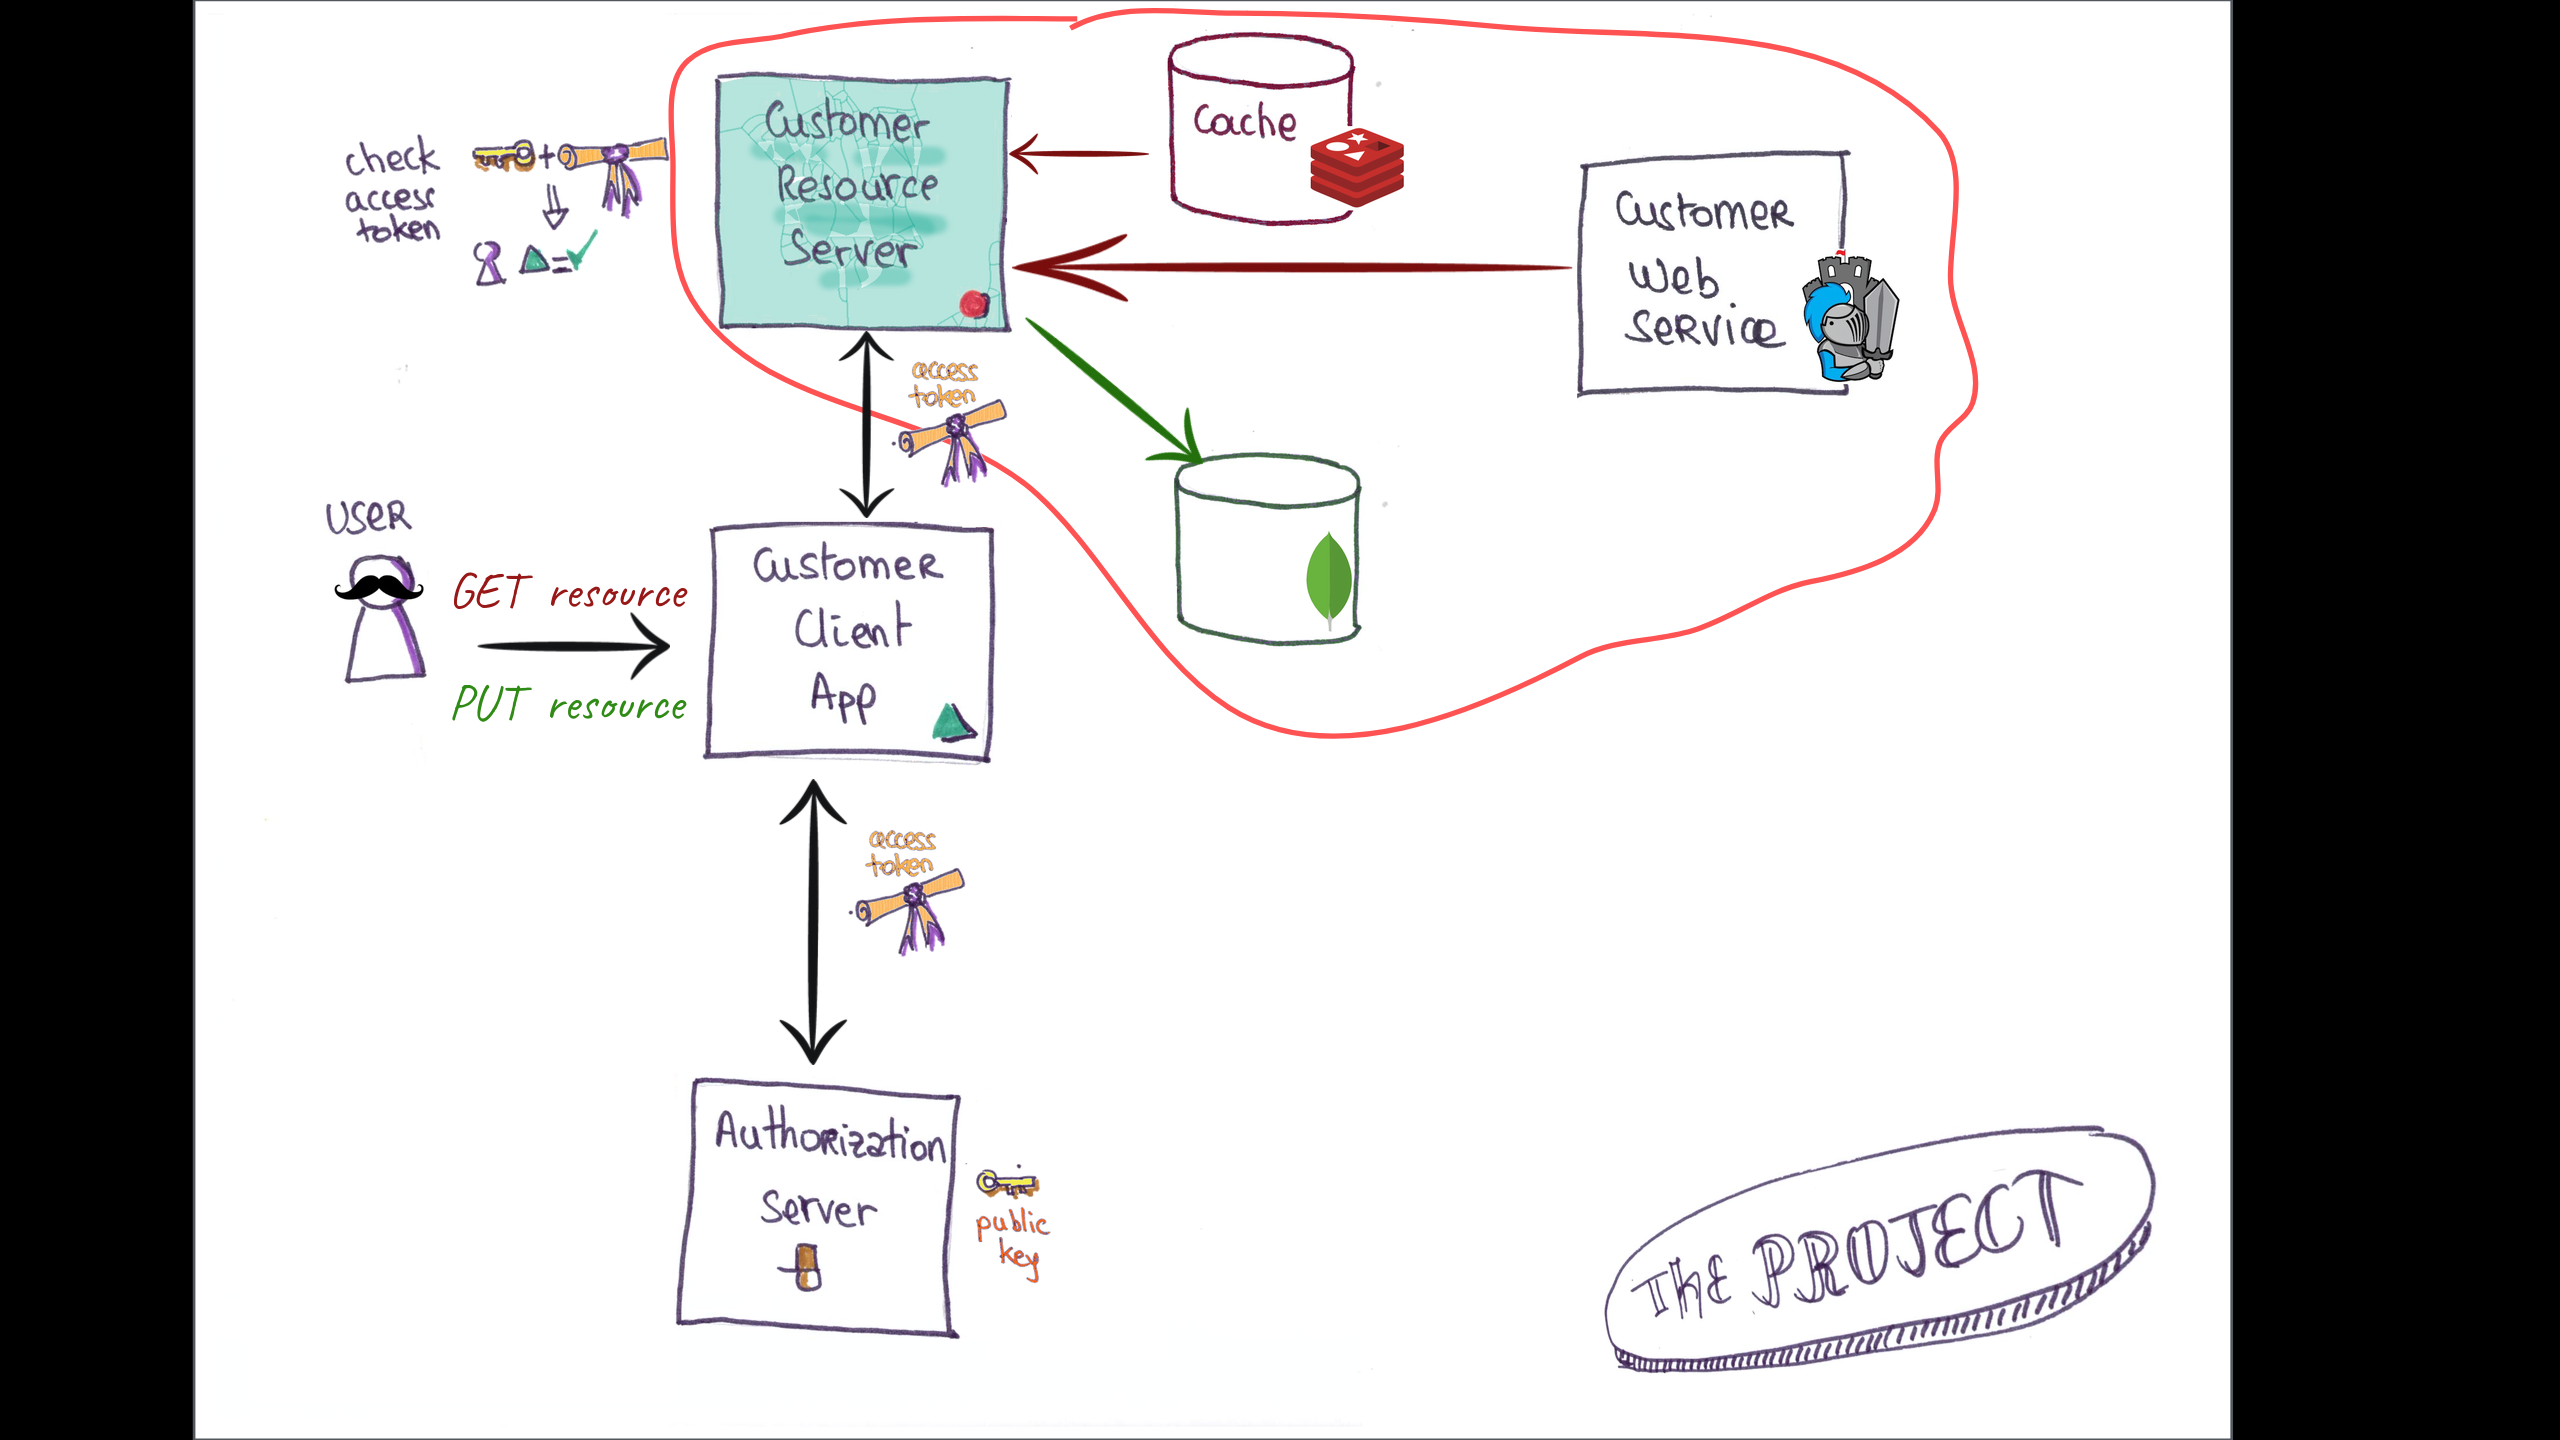 Customer
Resource
Server
Cache
Customer
Web
Service
check
access
token
access
token
USER
GET resource
PUT resource
Customer
Client
App
access
token
Authorization
Server
public
key
The PROJECT